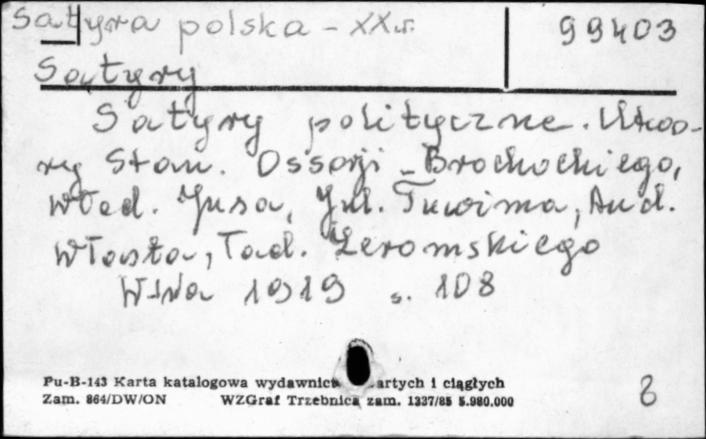 Satyra polska - XX w. 99403
Satyry
Satyry polityczne. Utwo-
ry Stan. Ossorji-Brochockiego,
Wład. Jusa, Jul. Tuwima, And.
Własta, Tad. Żeromskiego
W-wa 1919 s. 108
Pu-B-143 Karta katalogowa wydawnictw zwartych i ciągłych
Zam. 864/DW/ON WZGraf Trzebnica zam. 1337/85 5.980.000